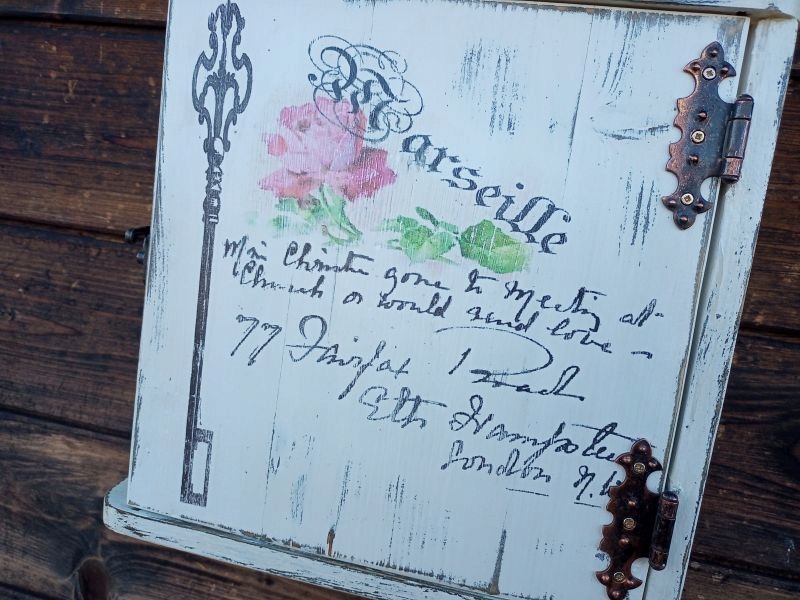 Marseille
Miss Christie gone to Meeting at
Church or would send love —
77 Fairfax Road
Sth Hampstead
London N.